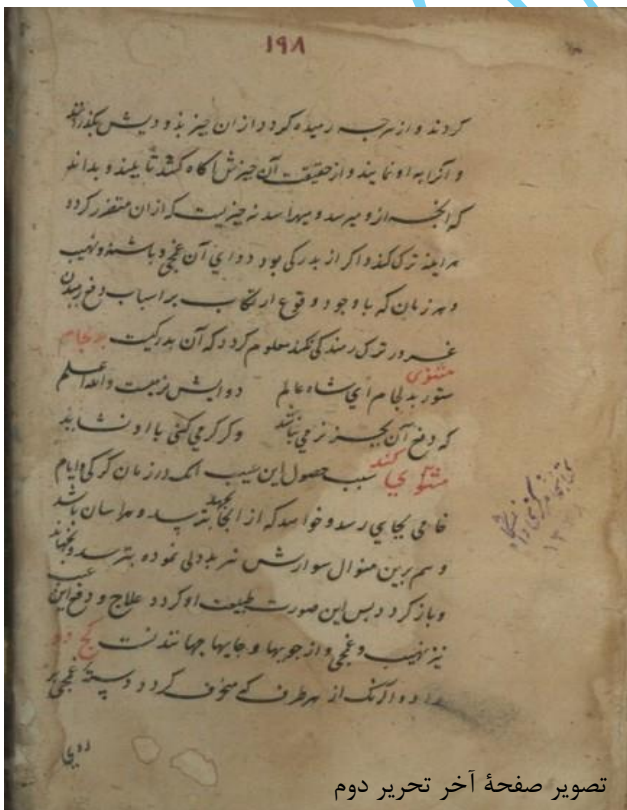 ۱۹۸
کردند و از هرچه رمیده کردد از ان چیز بذو دیش بگذرانند
و آنرا به او نمایند و از حقیقت آن چیزش اکاه کنند تا بیند و بداند
که انچه از و میرسد و میهراسد نه چیزیست که از ان متضرر کردد
هر اینه ترک کند و اکر از بدرکی بود دوای آن غمچی و باشنه و نهیب
و هر زمان که با وجود وقوع ارتکاب بر اسباب دفع رمیدن
غرور ترک رمندکی نکند معلوم کردد که آن بدرکیت بدلجام
مثنوی
ستور بدلجام ای شاه عالم دوایش نرمیست والله اعلم
که دفع آن بجز نرمی نباشد وکر کرمی کنی با او نشاید
سبب حصول این عیب انک در زمان کرکی و ایام
خامی بجایی رسد و خواهد که از انجا بجهد بترسد و هراسان باشد
و هم برین منوال سوارش نیز بددلی نموده بترسد و نجهاند
و باز کردد بس این صورت طبیعت او کردد علاج و دفع این عیب
نیز نهیب و غمچی و از جویها و جایها جهانندنست کج دو
دو انک از هر طرف که منحرف کردد غمچی بر
روی
تصویر صفحهٔ آخر تحریر دوم